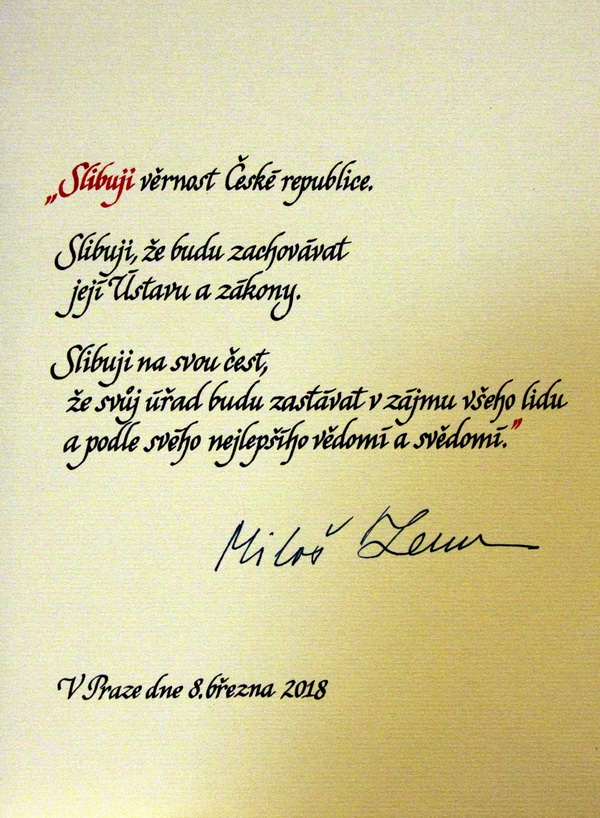 „Slibuji věrnost České republice.
Slibuji, že budu zachovávat
její Ústavu a zákony.
Slibuji na svou čest,
že svůj úřad budu zastávat v zájmu všeho lidu
a podle svého nejlepšího vědomí a svědomí.”
Miloš Zeman
V Praze dne 8. března 2018